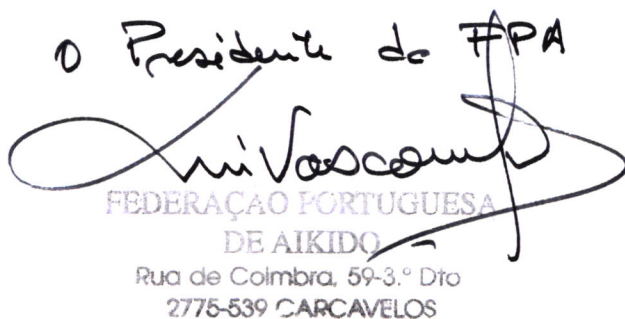 O Presidente da FPA
Luis Vasconcelos
FEDERAÇÃO PORTUGUESA
DE AIKIDO
Rua de Coimbra, 59-3.º Dto
2775-539 CARCAVELOS